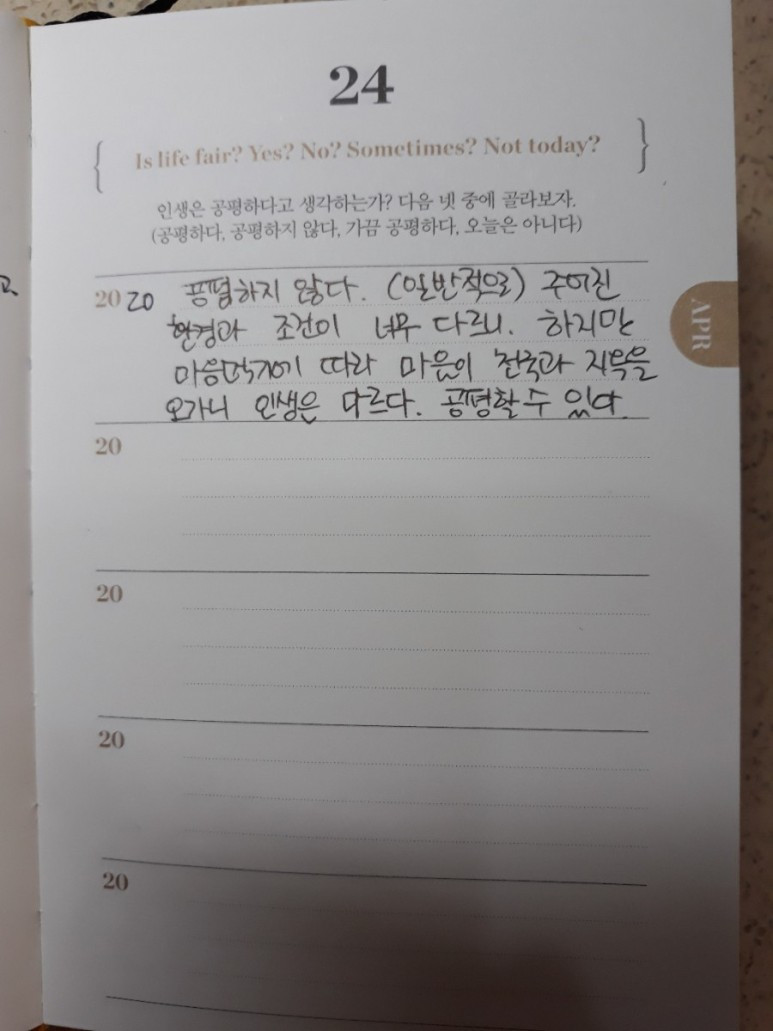 24
Is life fair? Yes? No? Sometimes? Not today?
인생은 공평하다고 생각하는가? 다음 넷 중에 골라보자.
(공평하다, 공평하지 않다, 가끔 공평하다, 오늘은 아니다)
2020 공평하지 않다. (일반적으로) 주어진
환경과 조건이 너무 다르니. 하지만
마음먹기에 따라 마음이 천국과 지옥을
오가니 인생은 다르다. 공평할 수 있다.
APR
20
20
20
20